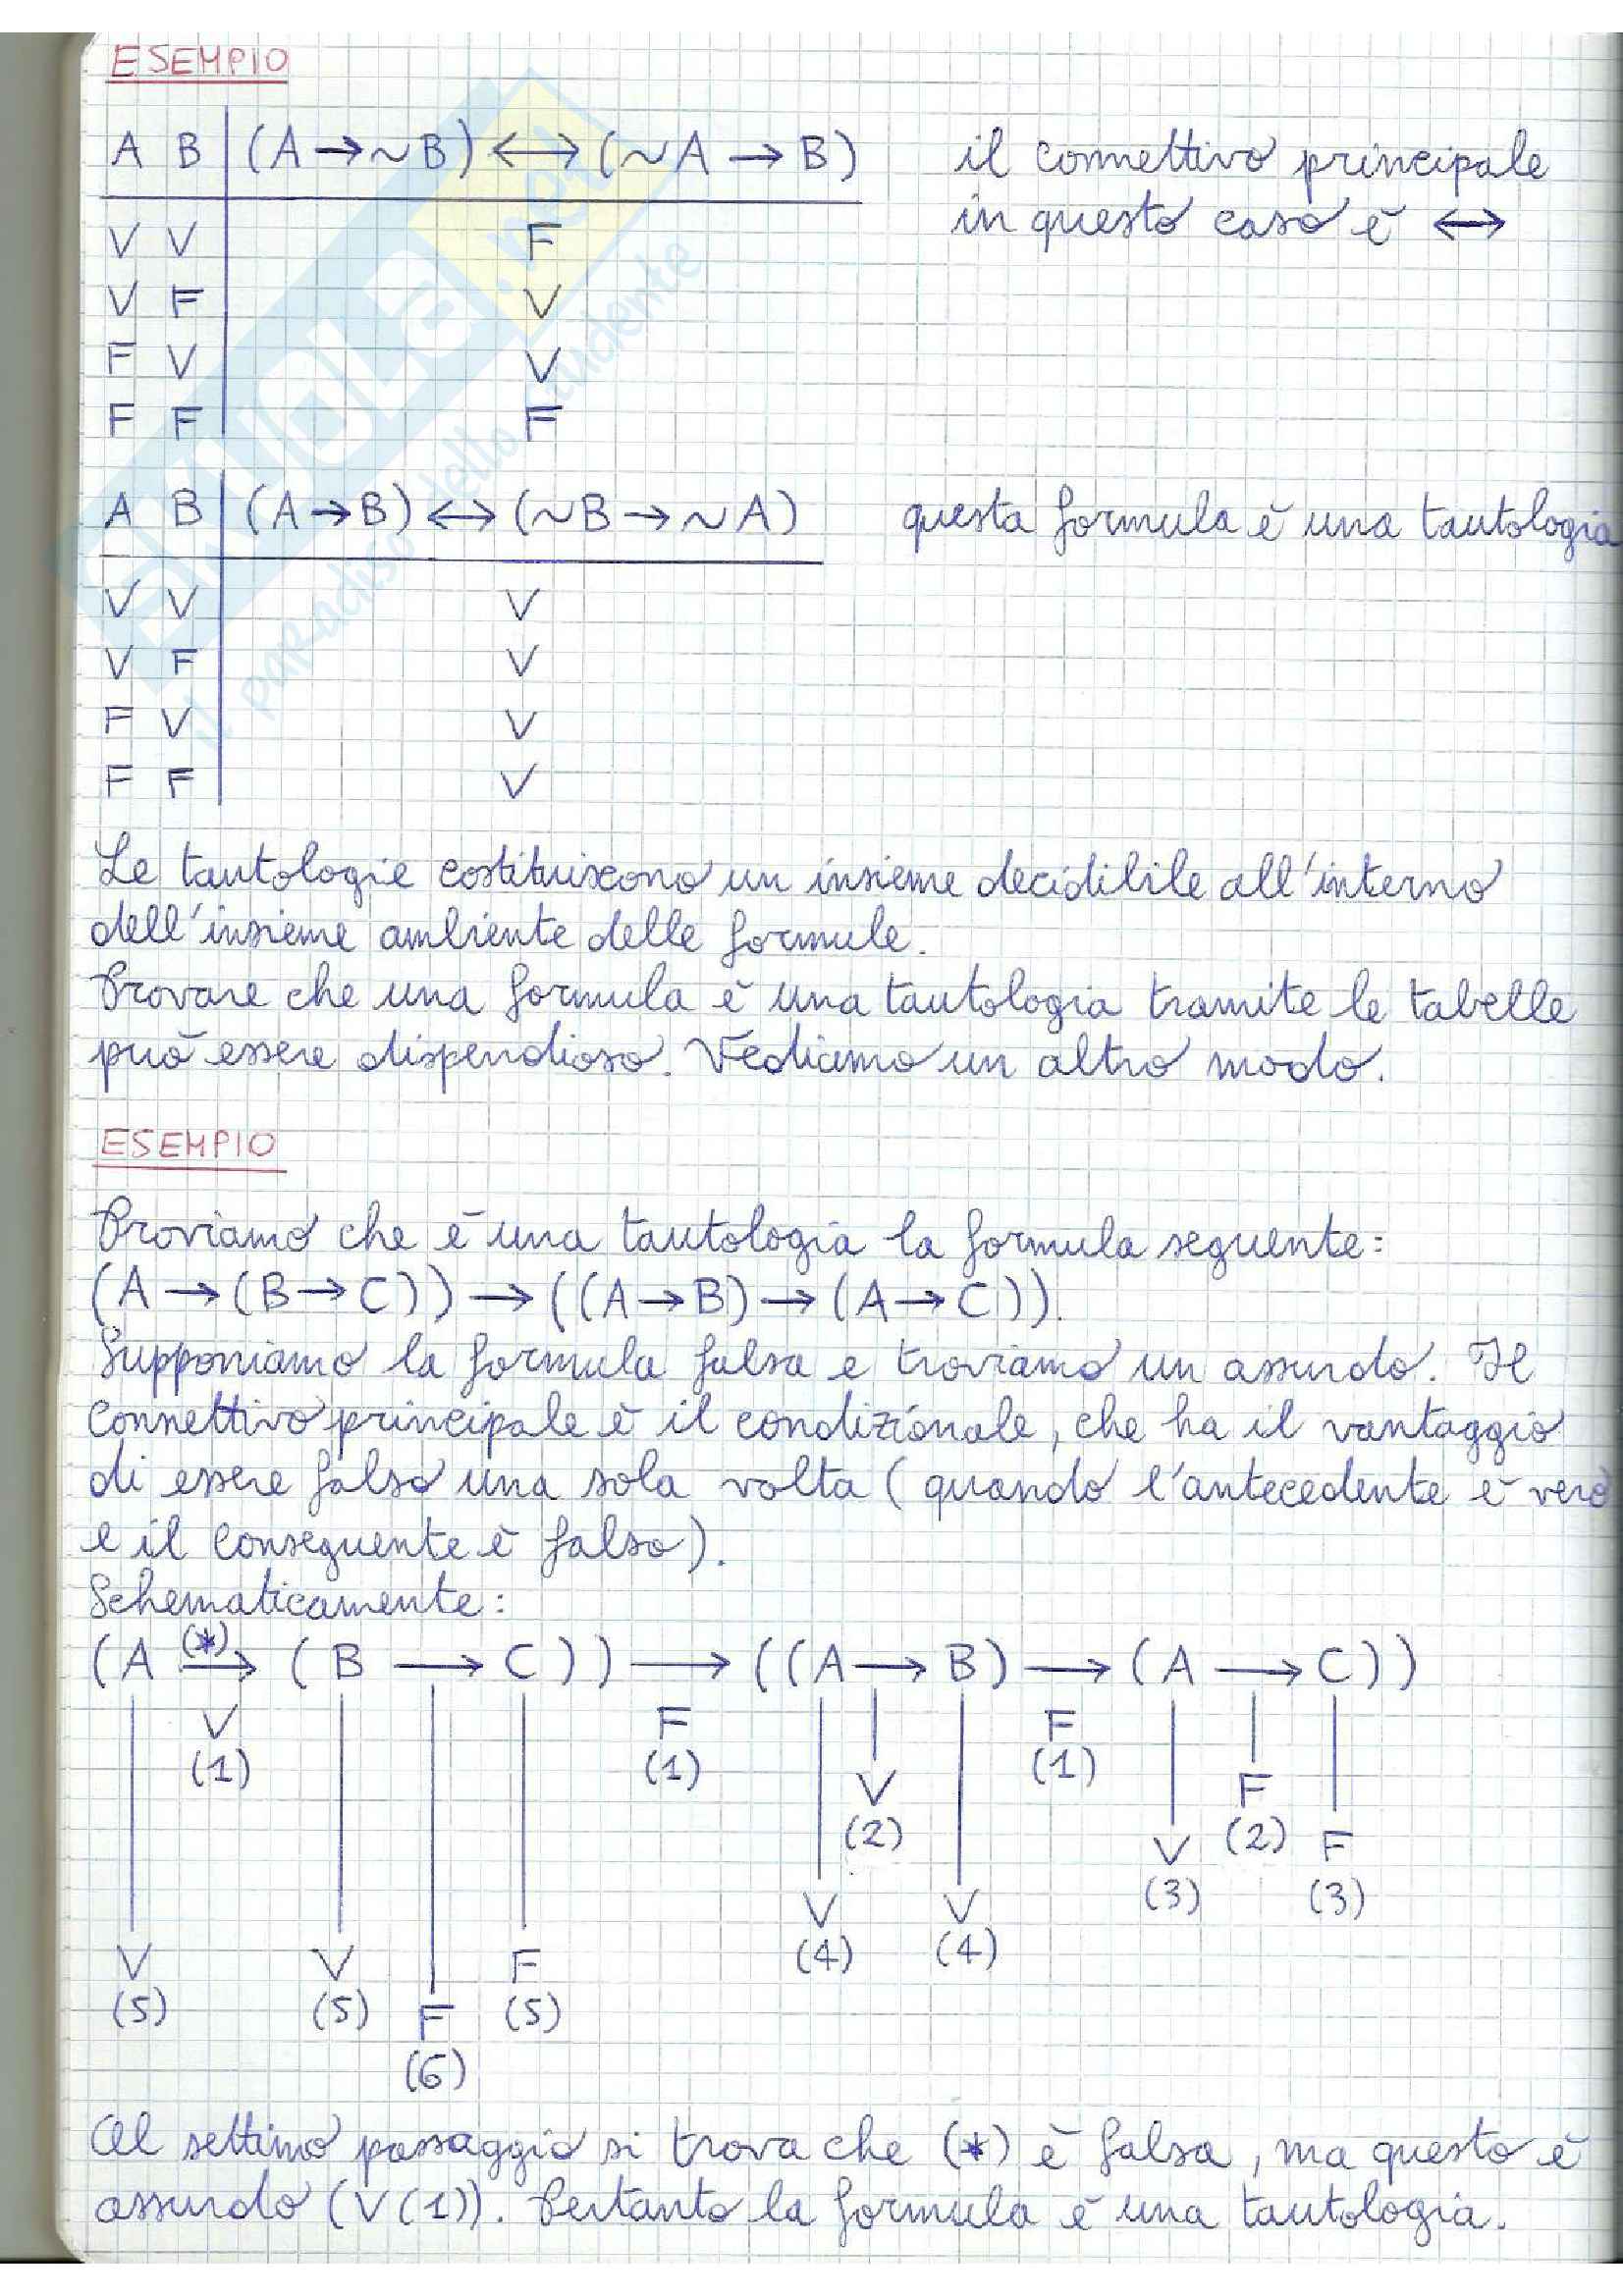 ESEMPIO
A B | (A → ~B) ↔ (~A → B) il connettivo principale
in questo caso è ↔
V V F
V F V
F V V
F F F
A B | (A → B) ↔ (~B → ~A) questa formula è una tautologia
V V V
V F V
F V V
F F V
Le tautologie costituiscono un insieme decidibile all'interno
dell'insieme ambiente delle formule.
Provare che una formula è una tautologia tramite le tabelle
può essere dispendioso. Vediamo un altro modo.
ESEMPIO
Proviamo che è una tautologia la formula seguente:
(A → (B → C)) → ((A → B) → (A → C)).
Supponiamo la formula falsa e troviamo un assurdo. Il
connettivo principale è il condizionale, che ha il vantaggio
di essere falso una sola volta (quando l'antecedente è vero
e il conseguente è falso).
Schematicamente:
(*)
(A → (B → C)) → ((A → B) → (A → C))
V F F
(1) (1) (1)
V F
(2) (2)
V F
(3) (3)
V V
(4) (4)
V V F
(5) (5) (5)
F
(6)
Al settimo passaggio si trova che (*) è falsa, ma questo è
assurdo (V (1)). Pertanto la formula è una tautologia.
il paradiso dello studente